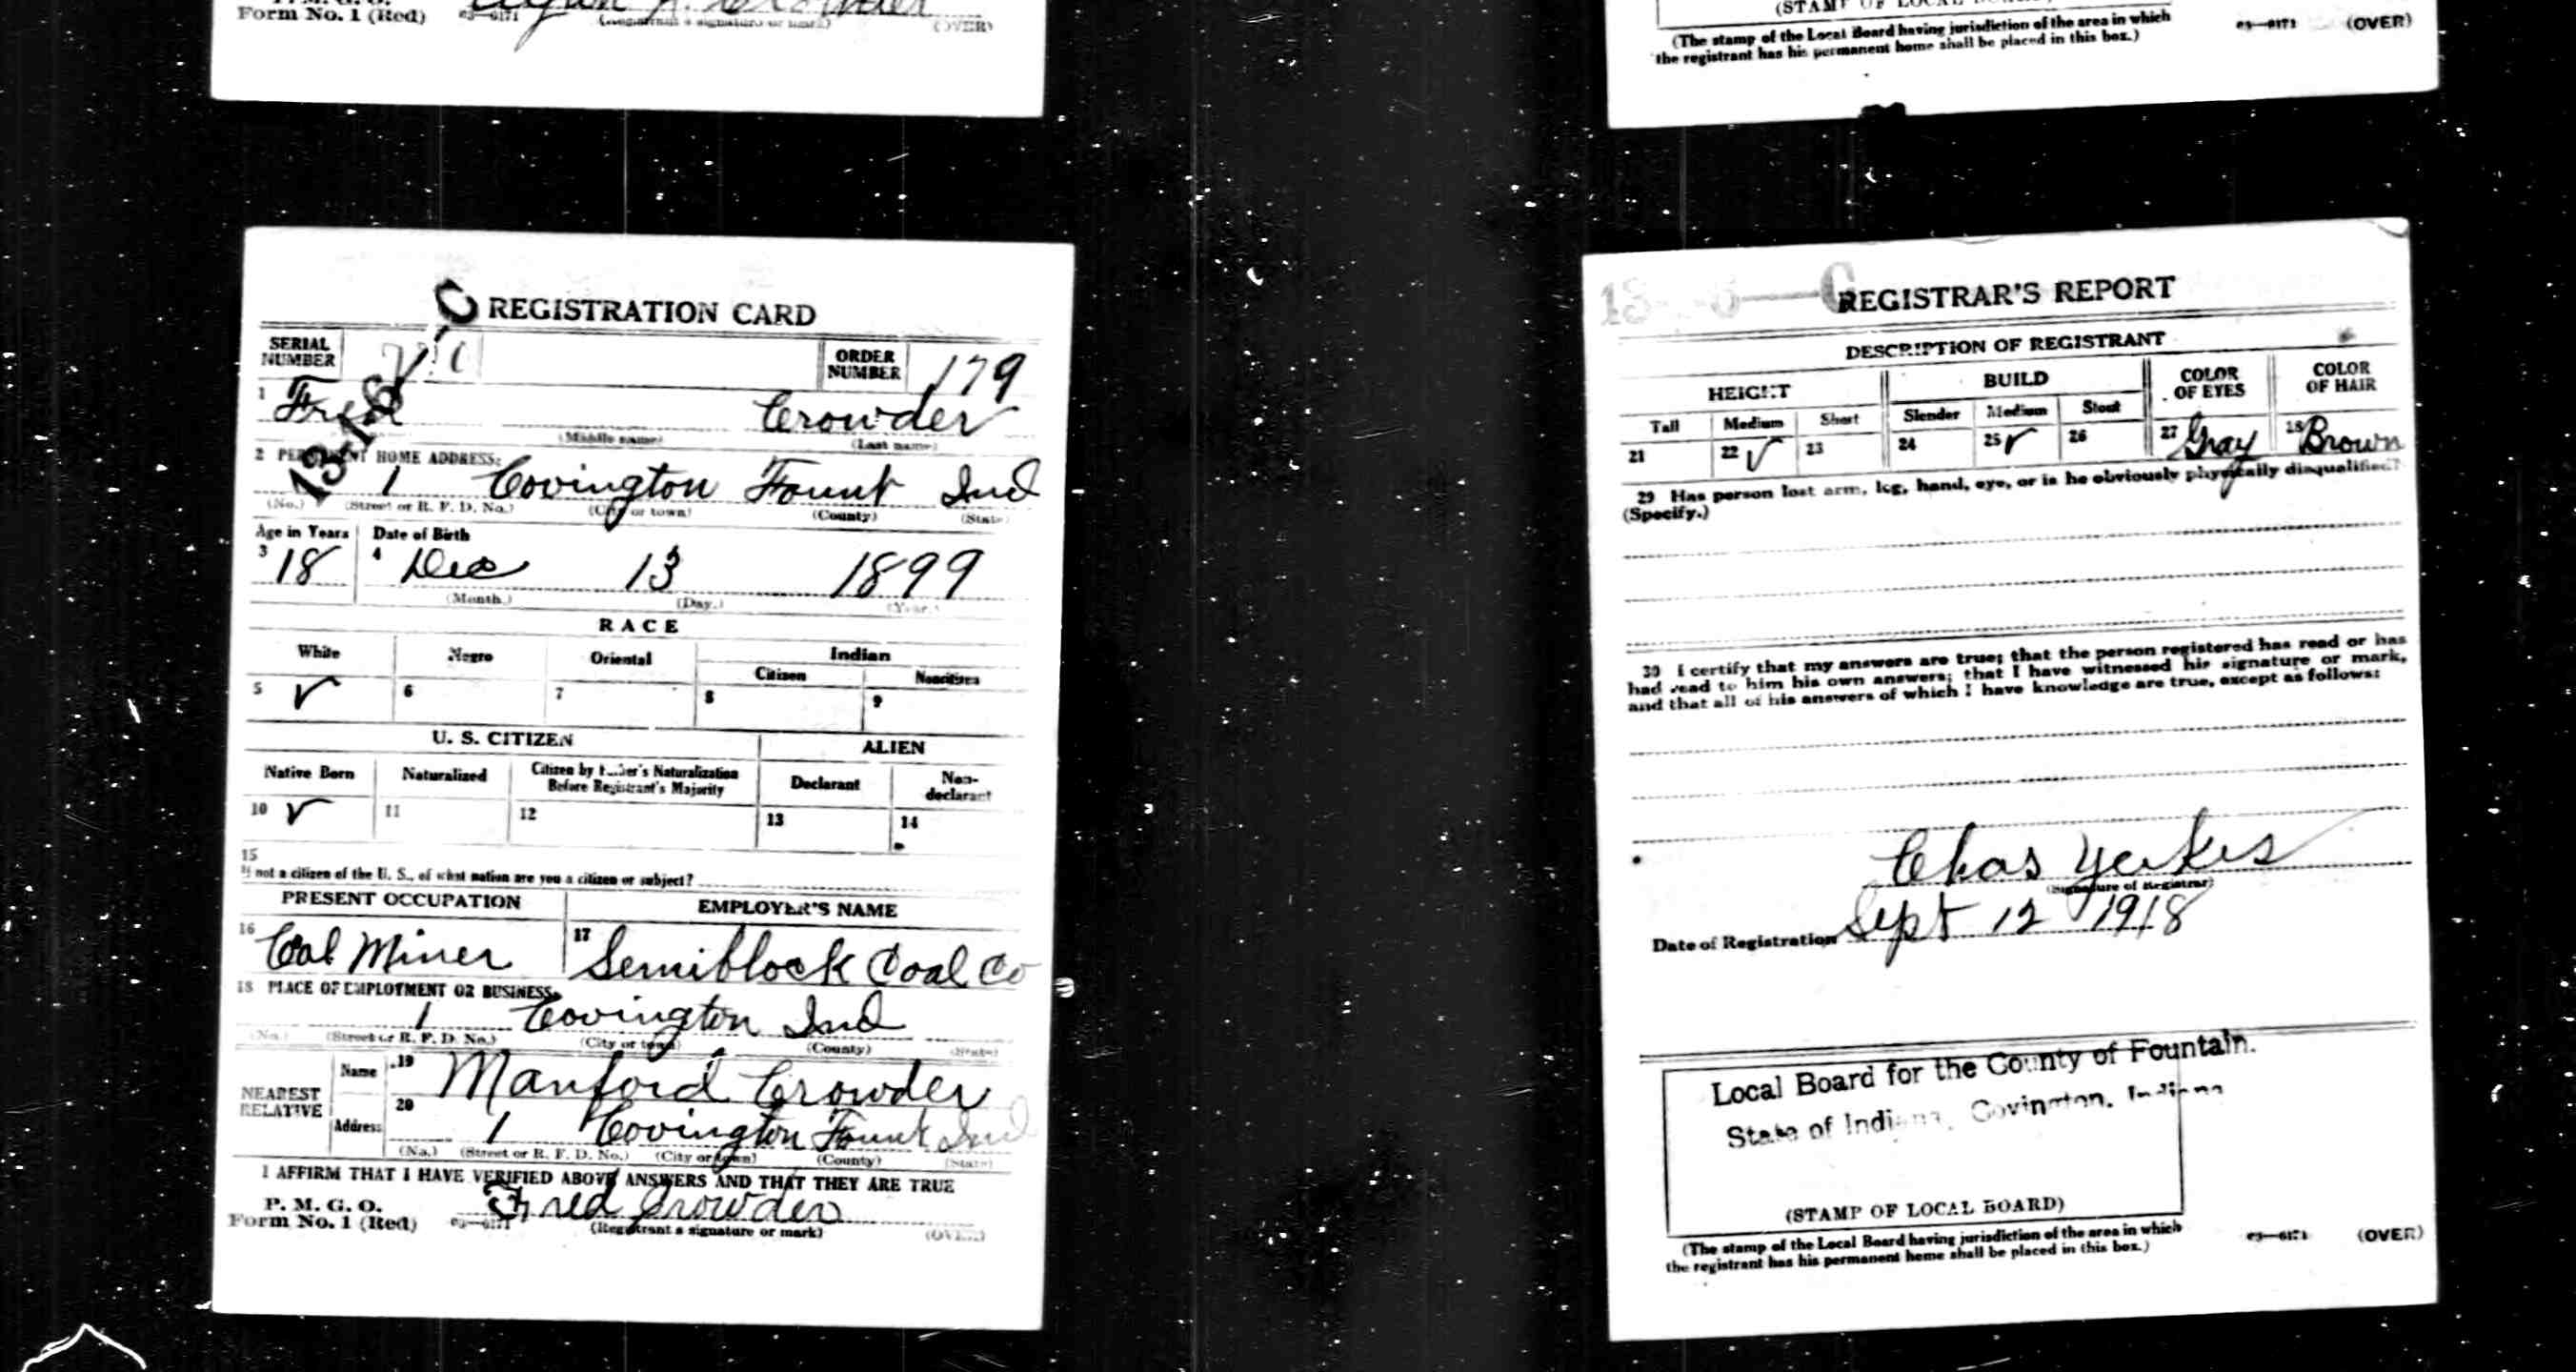 Form No. 1 (Red)
(Registrant's signature or mark)
(OVER)
REGISTRATION CARD
SERIAL NUMBER
ORDER NUMBER 179
1 Fred Crowder
(Middle name) (Last name)
2 PERMANENT HOME ADDRESS:
1 Covington Fount Ind
(No.) (Street or R. F. D. No.) (City or town) (County) (State)
Age in Years Date of Birth
3 18 4 Dec 13 1899
(Month.) (Day.) (Year.)
RACE
White Negro Oriental Indian
Citizen Noncitizen
5 ✓ 6 7 8 9
U. S. CITIZEN ALIEN
Native Born Naturalized Citizen by Father's Naturalization Before Registrant's Majority Declarant Non-declarant
10 ✓ 11 12 13 14
15
If not a citizen of the U. S., of what nation are you a citizen or subject?
PRESENT OCCUPATION EMPLOYER'S NAME
16 Coal Miner 17 Semiblock Coal Co
18 PLACE OF EMPLOYMENT OR BUSINESS:
1 Covington Ind
(No.) (Street or R. F. D. No.) (City or town) (County) (State)
NEAREST RELATIVE
Name 19 Manford Crowder
Address 20 1 Covington Fount Ind
(No.) (Street or R. F. D. No.) (City or town) (County) (State)
I AFFIRM THAT I HAVE VERIFIED ABOVE ANSWERS AND THAT THEY ARE TRUE
P. M. G. O.
Form No. 1 (Red) 03—6171 Fred Crowder
(Registrant's signature or mark) (OVER)
(STAMP OF LOCAL BOARD)
(The stamp of the Local Board having jurisdiction of the area in which
the registrant has his permanent home shall be placed in this box.)
03—6171 (OVER)
REGISTRAR'S REPORT
DESCRIPTION OF REGISTRANT
HEIGHT BUILD COLOR OF EYES COLOR OF HAIR
Tall Medium Short Slender Medium Stout
21 22 ✓ 23 24 25 ✓ 26 27 Gray 28 Brown
29 Has person lost arm, leg, hand, eye, or is he obviously physically disqualified?
(Specify.)
30 I certify that my answers are true; that the person registered has read or has
had read to him his own answers; that I have witnessed his signature or mark,
and that all of his answers of which I have knowledge are true, except as follows:
Chas Yerkes
(Signature of Registrar)
Date of Registration Sept 12 1918
Local Board for the County of Fountain.
State of Indiana, Covington, Indiana
(STAMP OF LOCAL BOARD)
(The stamp of the Local Board having jurisdiction of the area in which
the registrant has his permanent home shall be placed in this box.)
03—6171 (OVER)